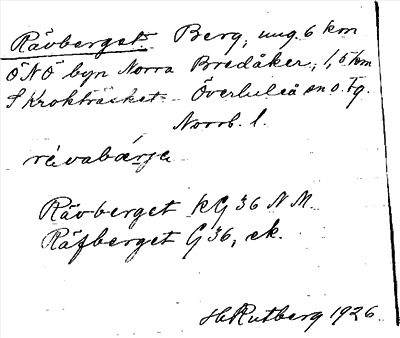 Rävberget Berg, ung. 6 km
ÖNÖ byn Norra Bredåker, 1,5 km
S Krokträsket Överluleå sn o. Tg.
Norrb. l.
rävabärje
Rävberget KG 36 N M.
Räfberget G 36, ek.
H Rutberg 1926